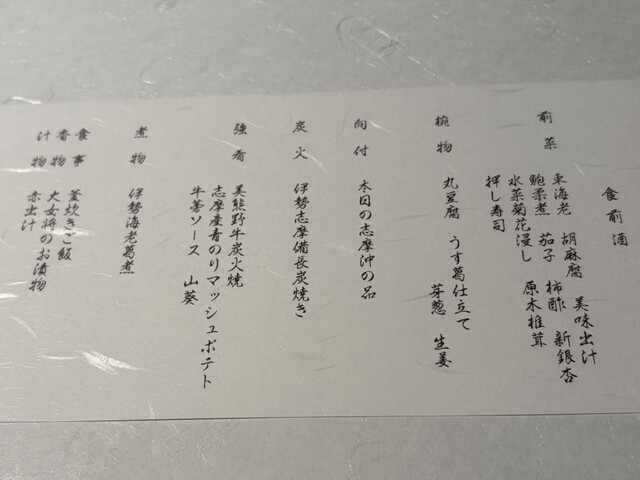 食前酒
前菜
車海老 胡麻腐 美味出汁
鮑柔煮 茄子 柿酢 新銀杏
水菜菊花浸し 原木椎茸
押し寿司
椀物
丸豆腐 うす葛仕立て
芽葱 生姜
向付
本日の志摩沖の品
炭火
伊勢志摩備長炭焼き
強肴
美熊野牛炭火焼
志摩産青のりマッシュポテト
牛蒡ソース 山葵
煮物
伊勢海老葛煮
食事
釜炊きご飯
香物
大女将のお漬物
汁物
赤出汁